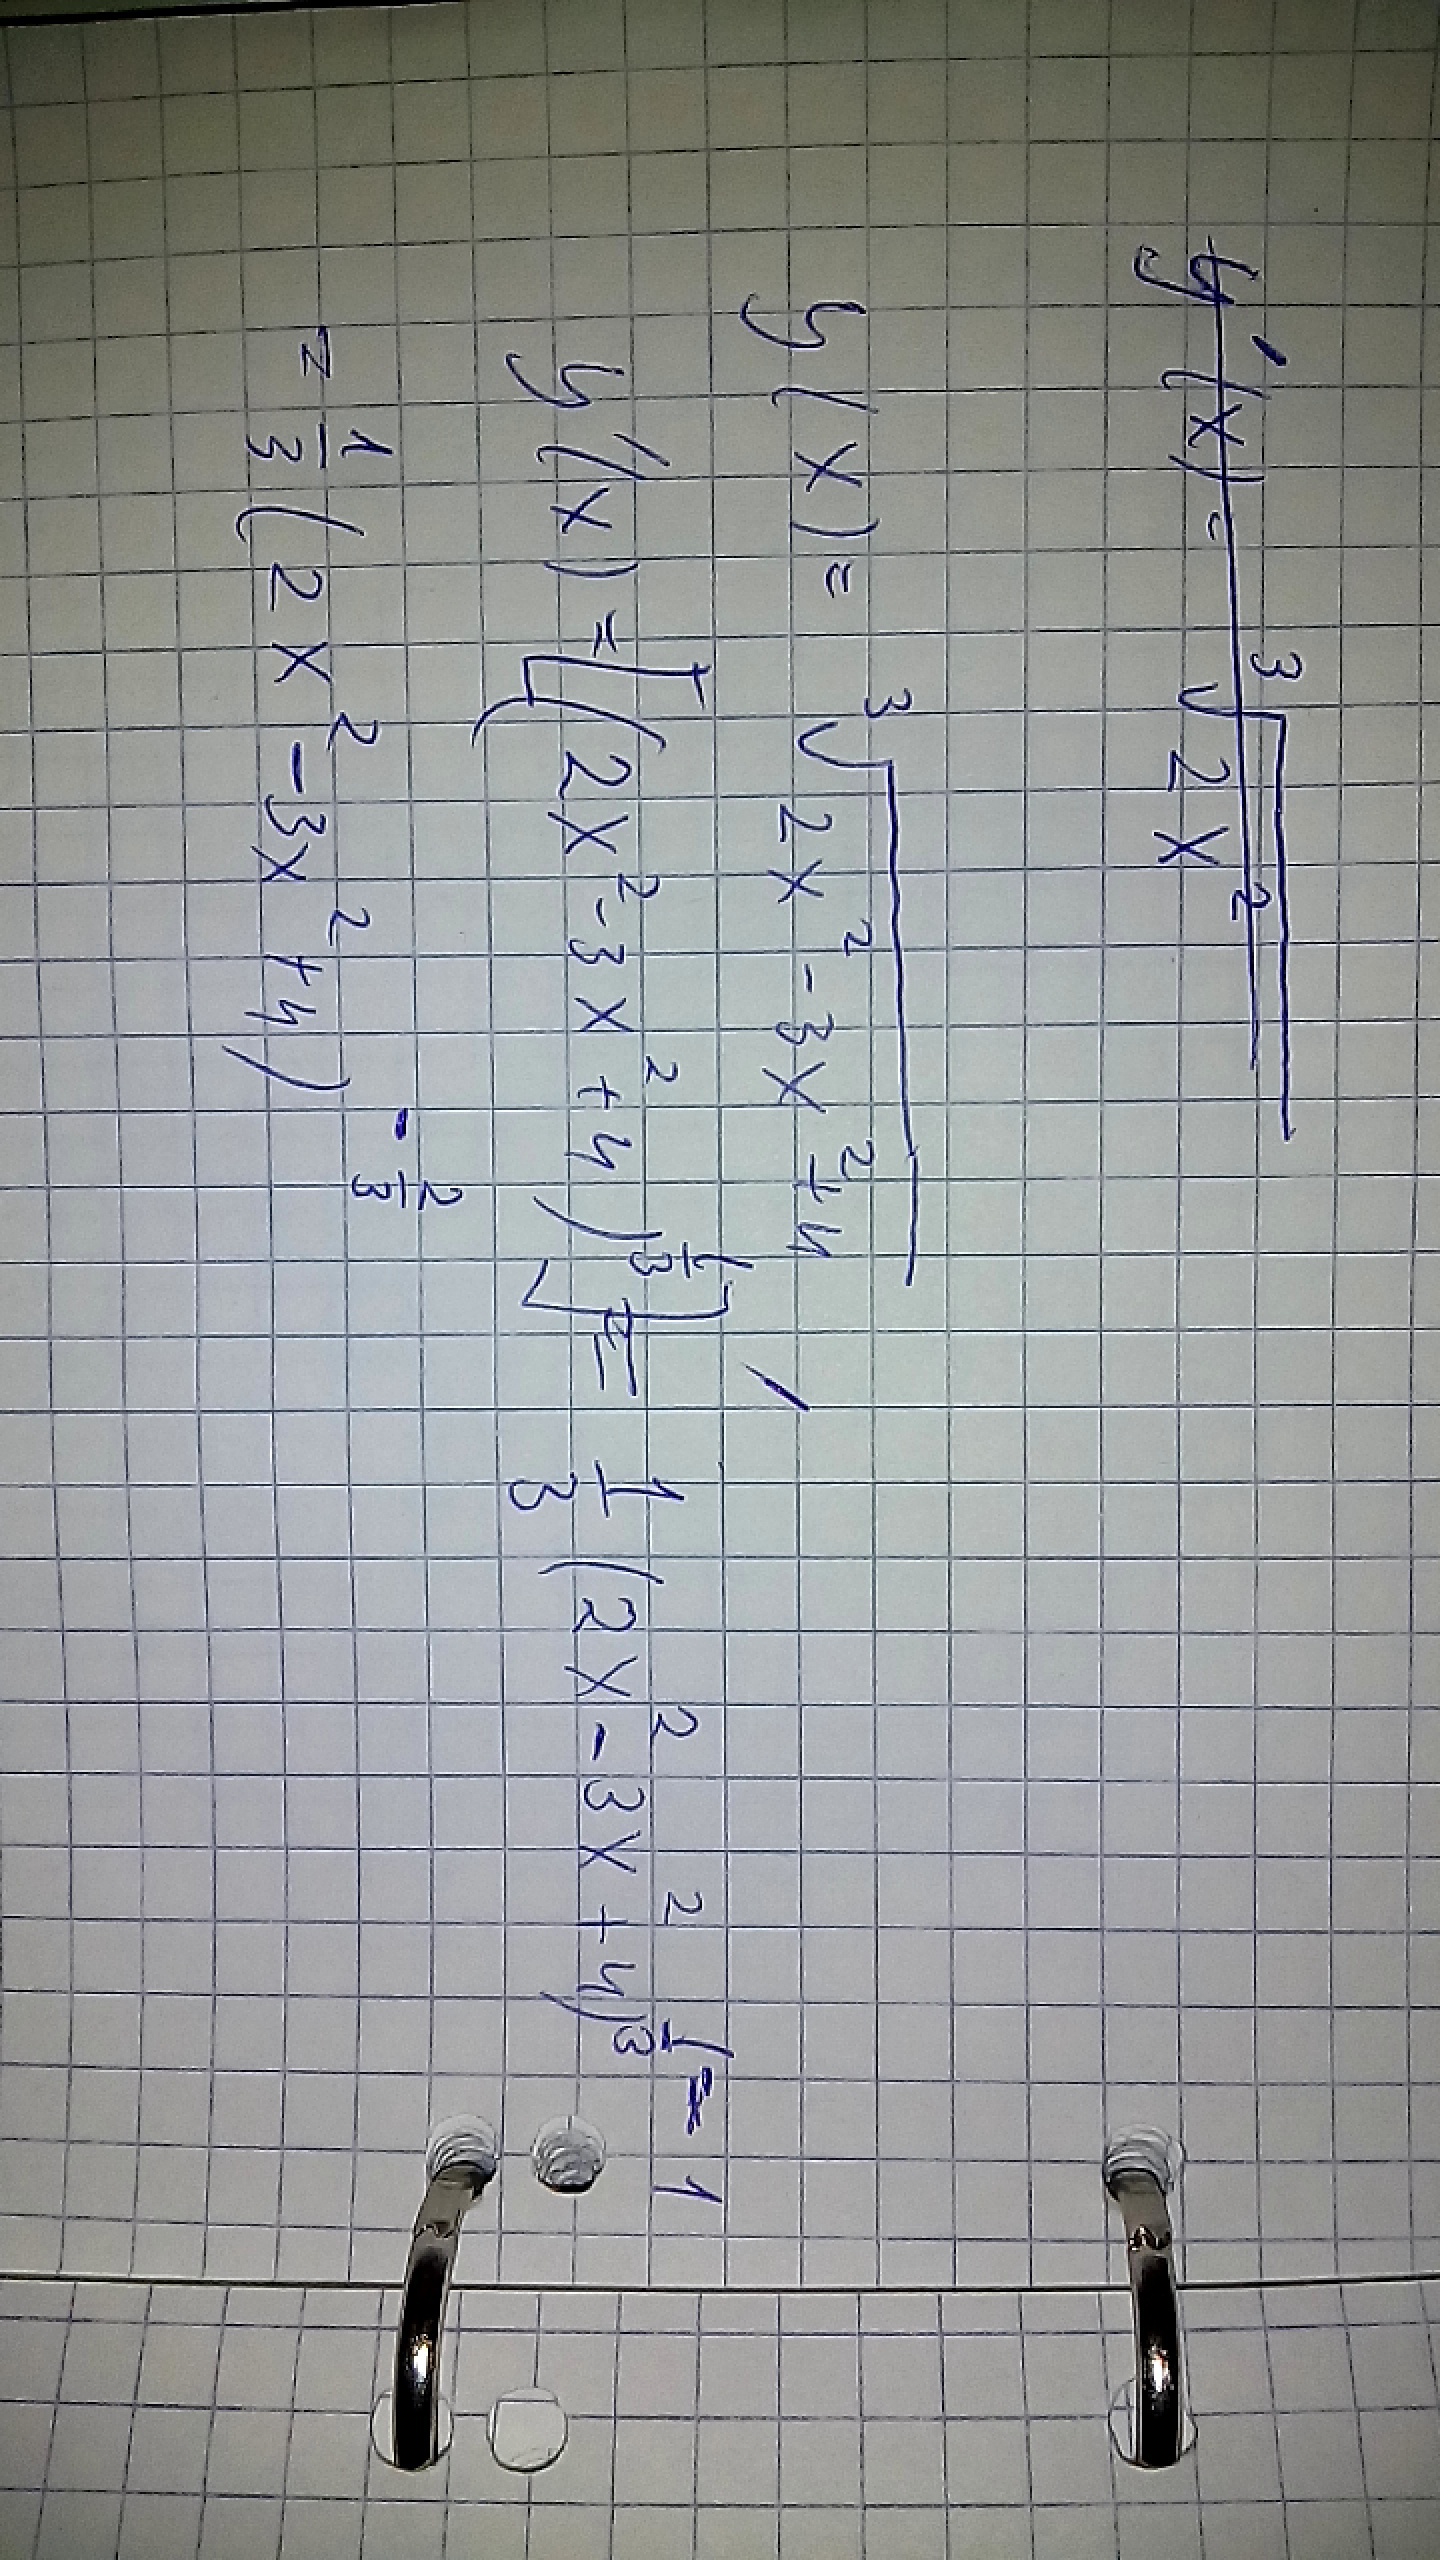 y'(x) = ∛2x²
y(x) = ∛2x² - 3x² + 4
y'(x) = [(2x² - 3x² + 4)^1/3]' = 1/3 (2x² - 3x² + 4)^1/3 - 1
= 1/3 (2x² - 3x² + 4)^-2/3